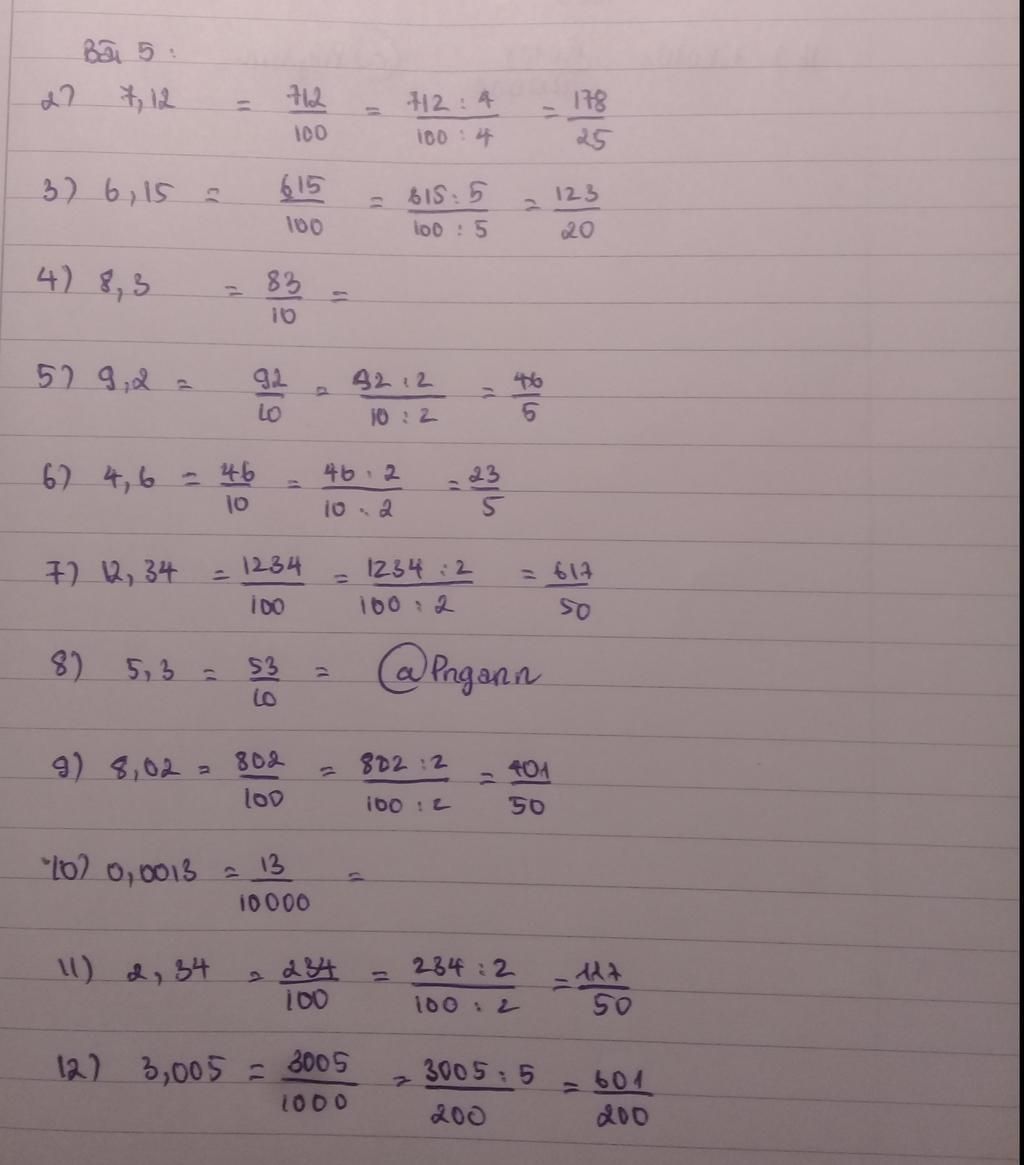 Bài 5 :
2) 7,12 = 712/100 = 712 : 4/100 : 4 = 178/25
3) 6,15 = 615/100 = 615 : 5/100 : 5 = 123/20
4) 8,3 = 83/10 =
5) 9,2 = 92/10 = 92 : 2/10 : 2 = 46/5
6) 4,6 = 46/10 = 46 : 2/10 : 2 = 23/5
7) 12,34 = 1234/100 = 1234 : 2/100 : 2 = 617/50
8) 5,3 = 53/10 = @Pngann
9) 8,02 = 802/100 = 802 : 2/100 : 2 = 401/50
10) 0,0013 = 13/10000 =
11) 2,34 = 234/100 = 234 : 2/100 : 2 = 117/50
12) 3,005 = 3005/1000 = 3005 : 5/200 = 601/200